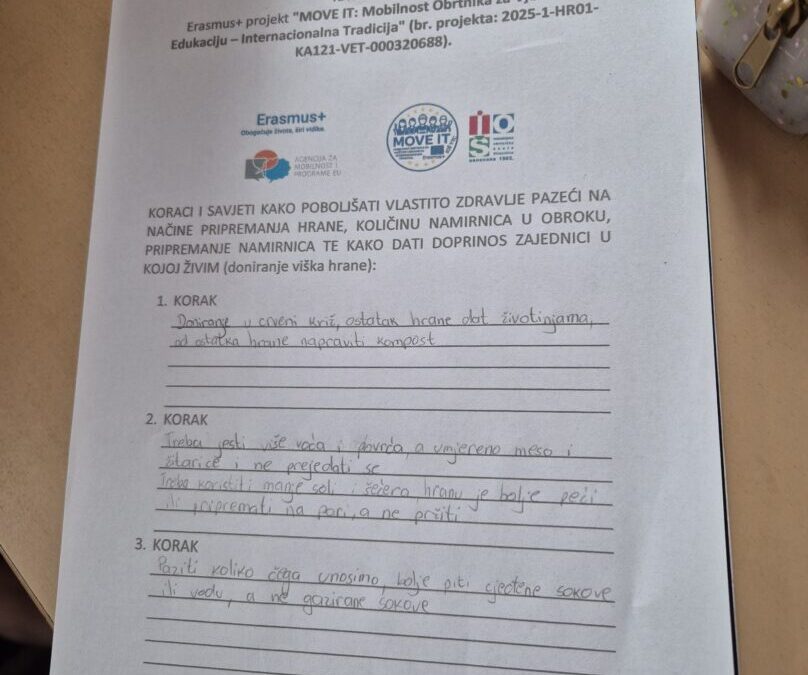 Erasmus+ projekt "MOVE IT: Mobilnost Obrtnika za
Edukaciju – Internacionalna Tradicija" (br. projekta: 2025-1-HR01-
KA121-VET-000320688).
Erasmus+
Obogaćuje živote, širi vidike.
AGENCIJA ZA
MOBILNOST I
PROGRAME EU
MOVE IT
Erasmus+
KORACI I SAVJETI KAKO POBOLJŠATI VLASTITO ZDRAVLJE PAZEĆI NA
NAČINE PRIPREMANJA HRANE, KOLIČINU NAMIRNICA U OBROKU,
PRIPREMANJE NAMIRNICA TE KAKO DATI DOPRINOS ZAJEDNICI U
KOJOJ ŽIVIM (doniranje viška hrane):
1. KORAK
Doniranje u crveni križ, ostatak hrane dat životinjama,
od ostatka hrane napraviti kompost
2. KORAK
Treba jesti više voća i povrća, a umjereno meso i
žitarice i ne prejedati se
Treba koristiti manje soli i šećera, hranu je bolje peći
ili pripremati na pari, a ne pržiti
3. KORAK
Paziti koliko čega unosimo, bolje piti cjeđene sokove
ili vodu, a ne gazirane sokove